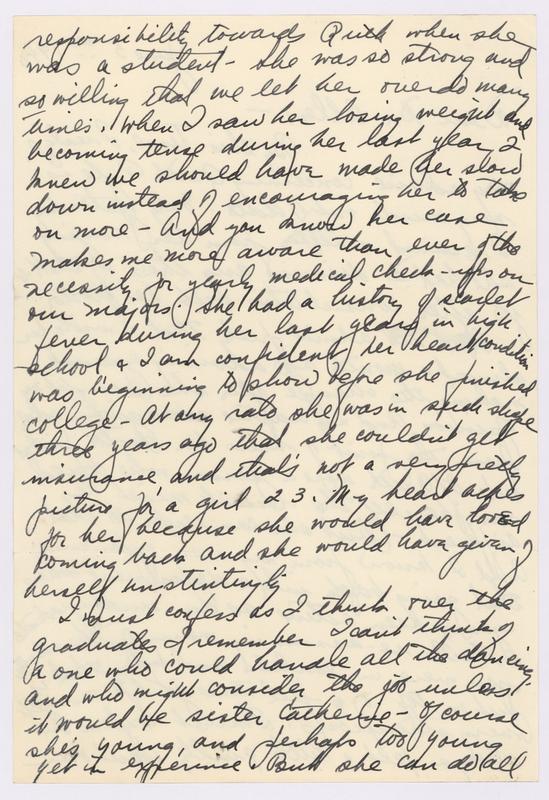 responsibility towards Ruth when she
was a student - she was so strong and
so willing that we let her overdo many
times. When I saw her losing weight and
becoming tense during her last year, I
knew we should have made her slow
down instead of encouraging her to take
on more - And you know her case
makes me more aware than ever of the
necessity for yearly medical check-ups on
our majors. She had a history of scarlet
fever during her last years in high
school & I am confident her heart condition
was beginning to show before she finished
college - At any rate she was in such shape
three years ago that she couldn't get
insurance and that's not a very pretty
picture for a girl 23. My heart aches
for her because she would have loved
coming back and she would have given of
herself unstintingly
I must confess as I think over the
graduates I remember I can't think of
a one who could handle all the dancing,
and who might consider the job unless
it would be sister Catherine - Of course
she's young, and perhaps too young
yet in experience. But she can do all